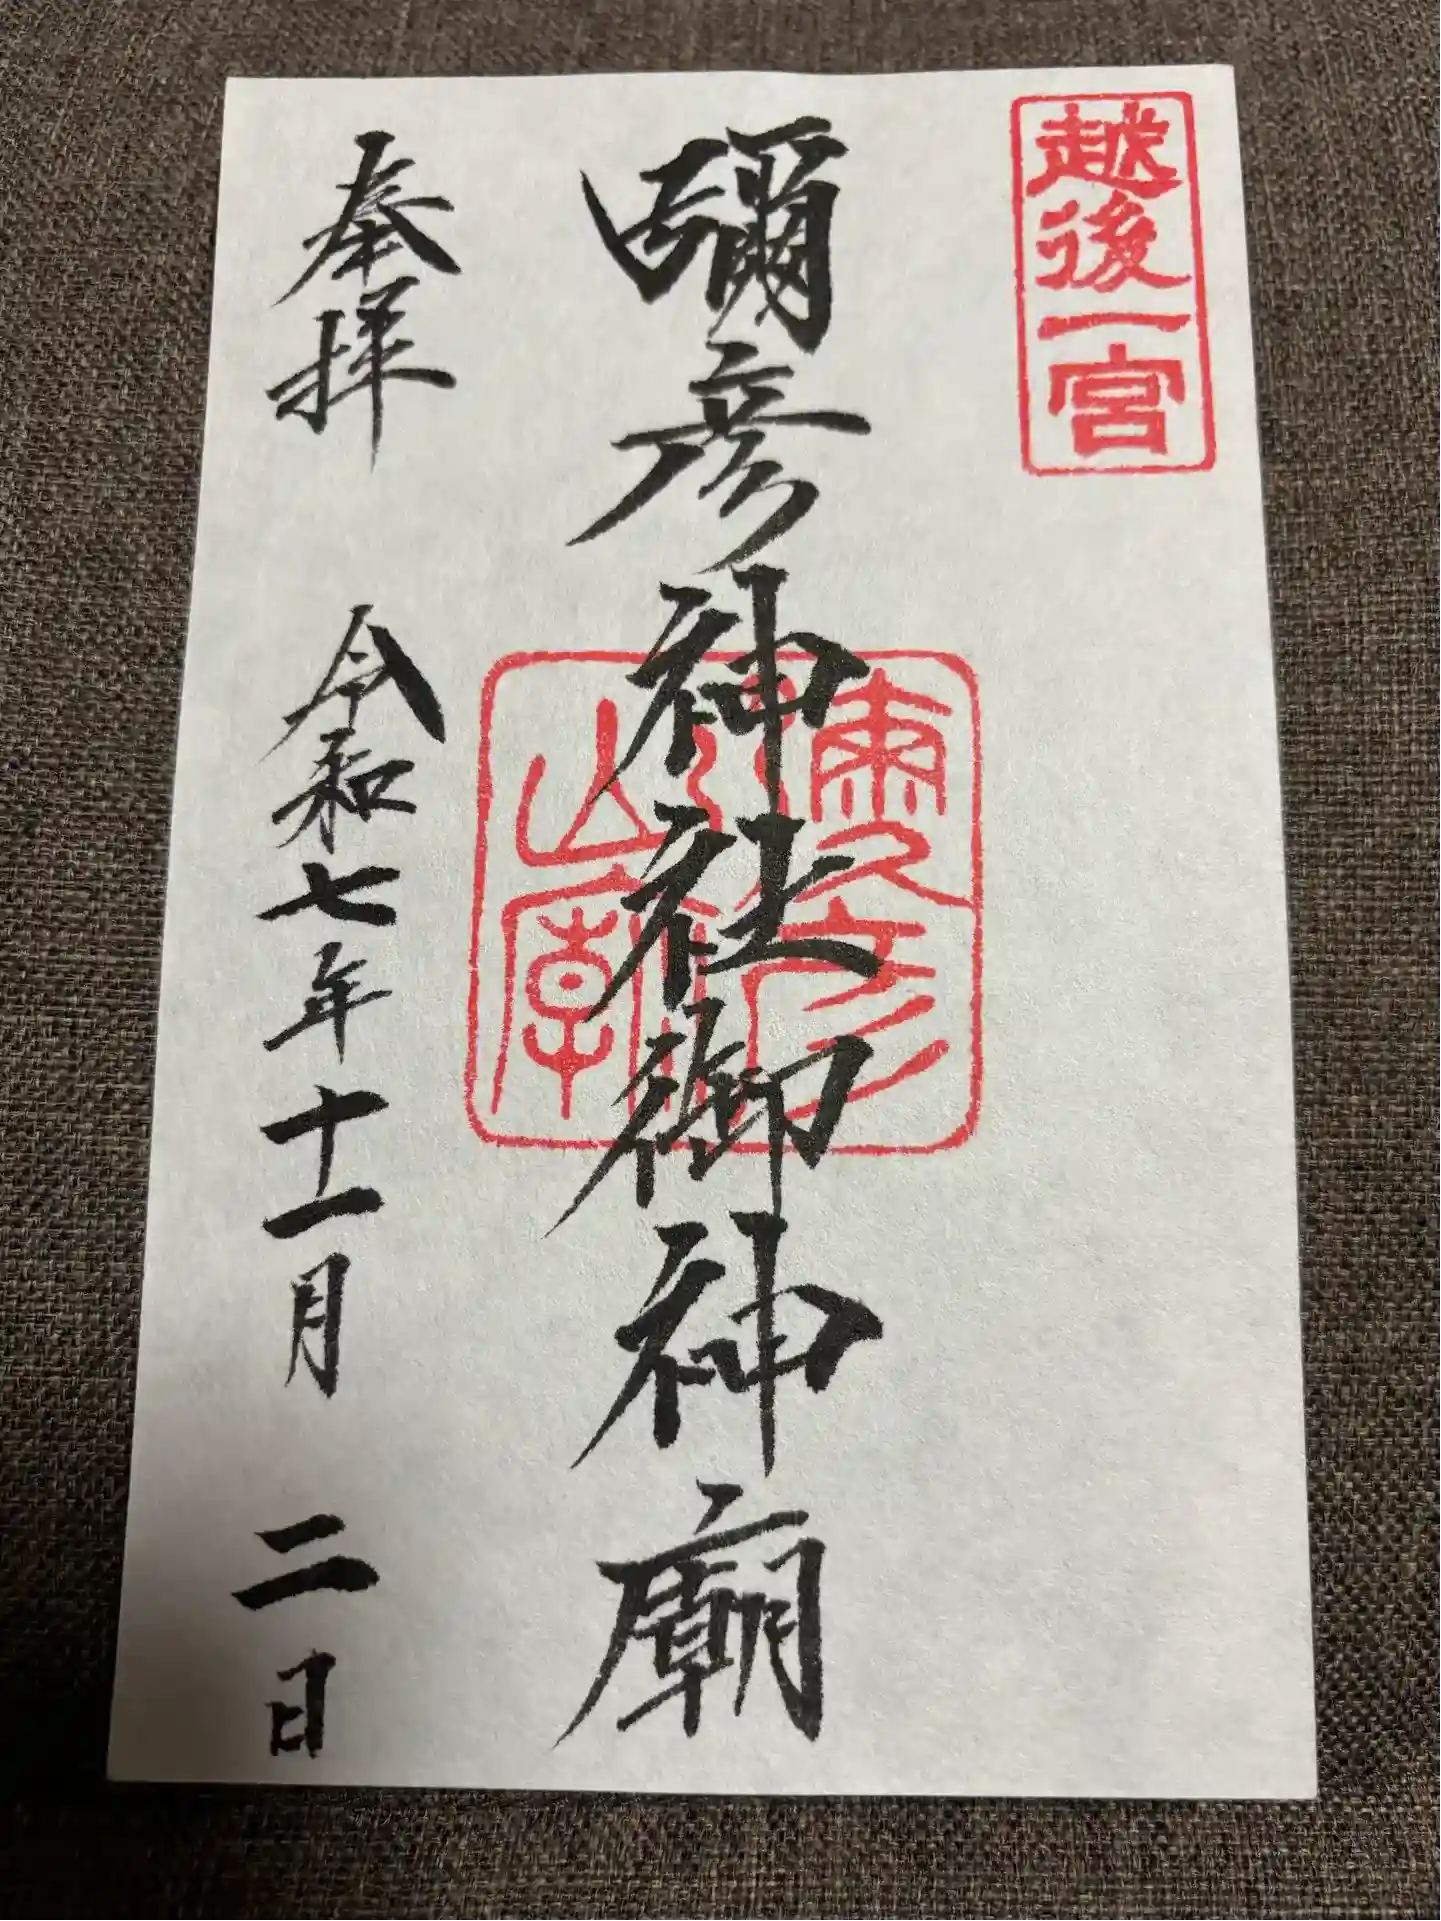 越後一宮
彌彦神社御神廟
奉拝 令和七年十一月 二日